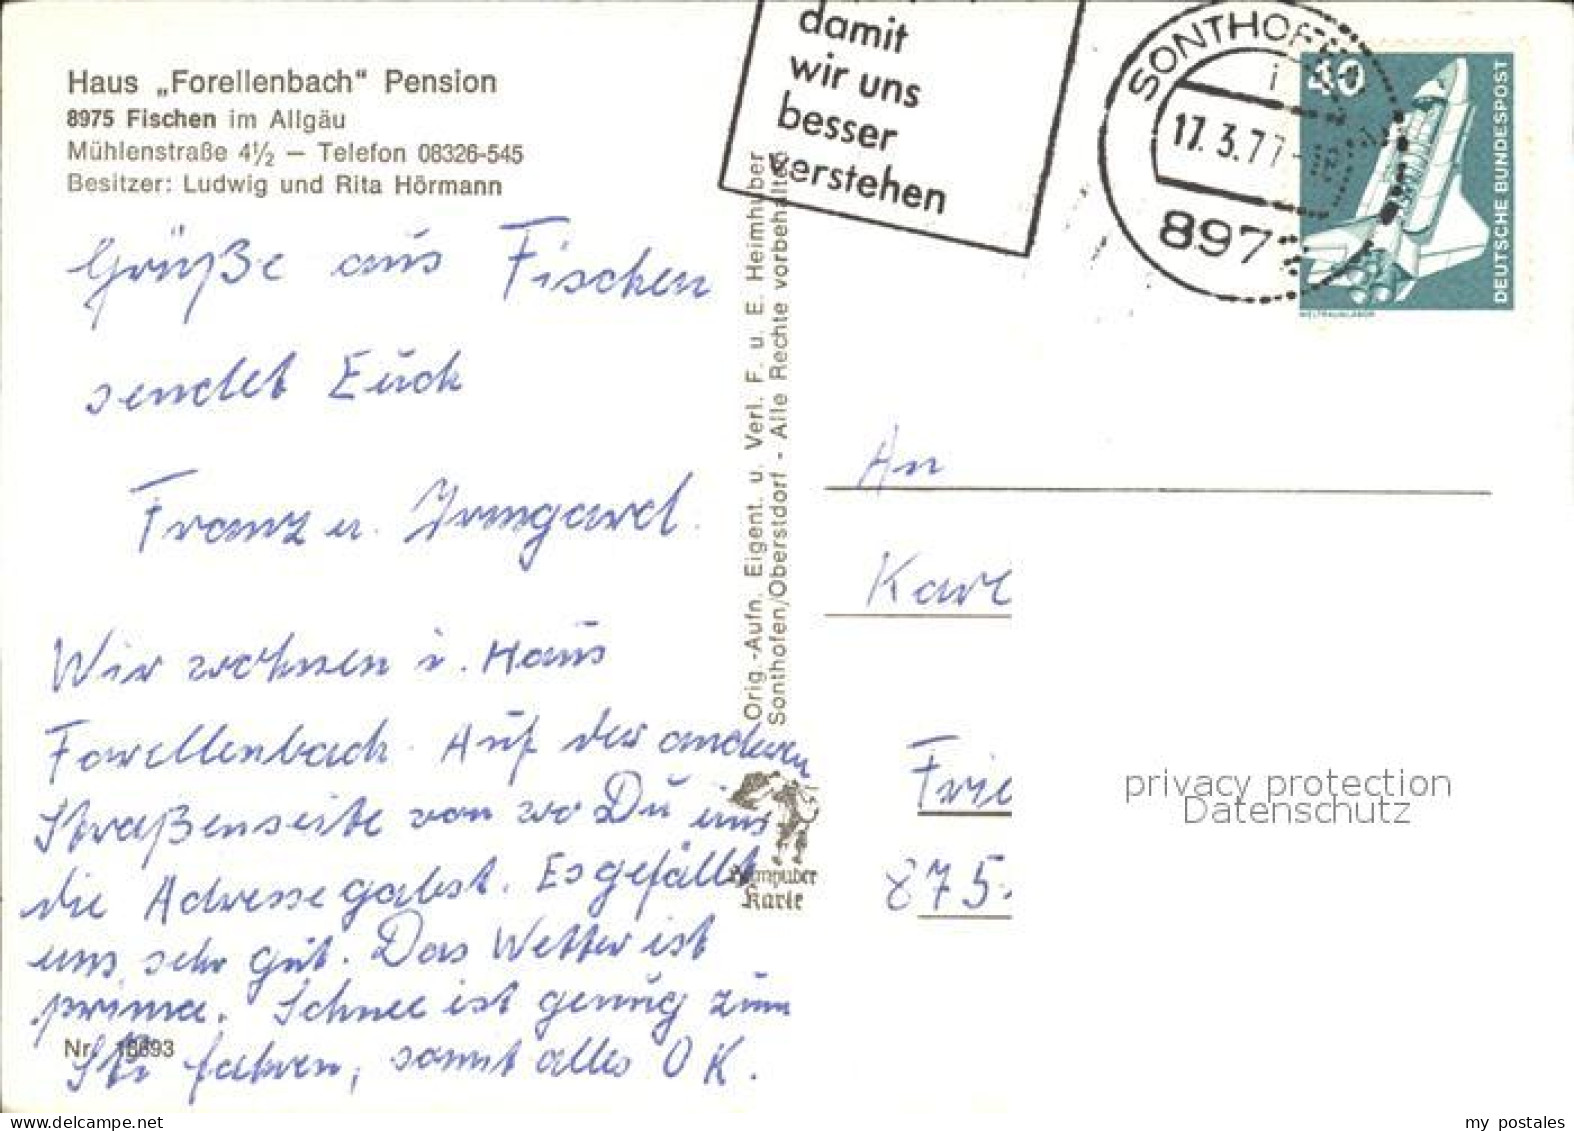 Haus „Forellenbach“ Pension
8975 Fischen im Allgäu
Mühlenstraße 4½ — Telefon 08326-545
Besitzer: Ludwig und Rita Hörmann
Grüße aus Fischen
sendet Euch
Franz u. Irmgard.
Wir wohnen i. Haus
Forellenbach. Auf der andern
Straßenseite von wo Du uns
die Adresse gabst. Es gefällt
uns sehr gut. Das Wetter ist
prima. Schnee ist genug zum
Ski fahren, somit alles OK.
Nr. 18693
Orig.-Aufn. Eigent. u. Verl. F. u. E. Heimhuber
Sonthofen/Oberstdorf - Alle Rechte vorbehalten
Heimhuber
Karte
damit
wir uns
besser
verstehen
SONTHOFEN
i
17.3.77
897
40
DEUTSCHE BUNDESPOST
WELTRAUMLABOR
An
Karl
Frie
875
privacy protection
Datenschutz
my postales